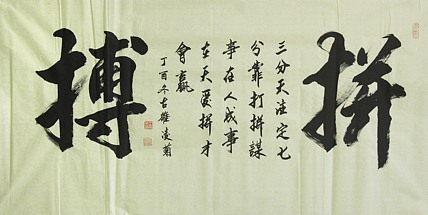 拼
三分天注定七
分靠打拼謀
事在人成事
在天爱拼才
會赢
丁酉冬古雍凌菊
搏